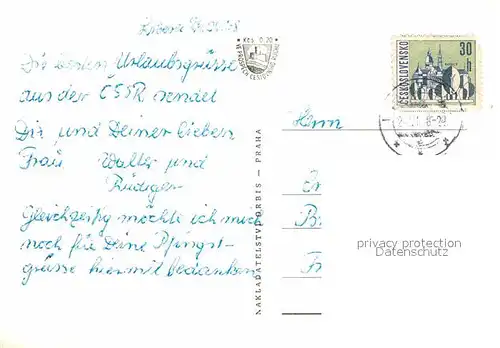 Die besten Urlaubsgrüsse
aus der CSSR sendet
Dir und Deiner lieben
Frau Walter und
Rüdiger
Gleichzeitig möchte ich mich
noch für Deine Pfingst-
grüsse hiermit bedanken
Kčs 0.20
NAKLADATELSTVÍ ORBIS – PRAHA
ČESKOSLOVENSKO
30
h
Herrn
B
privacy protection
Datenschutz